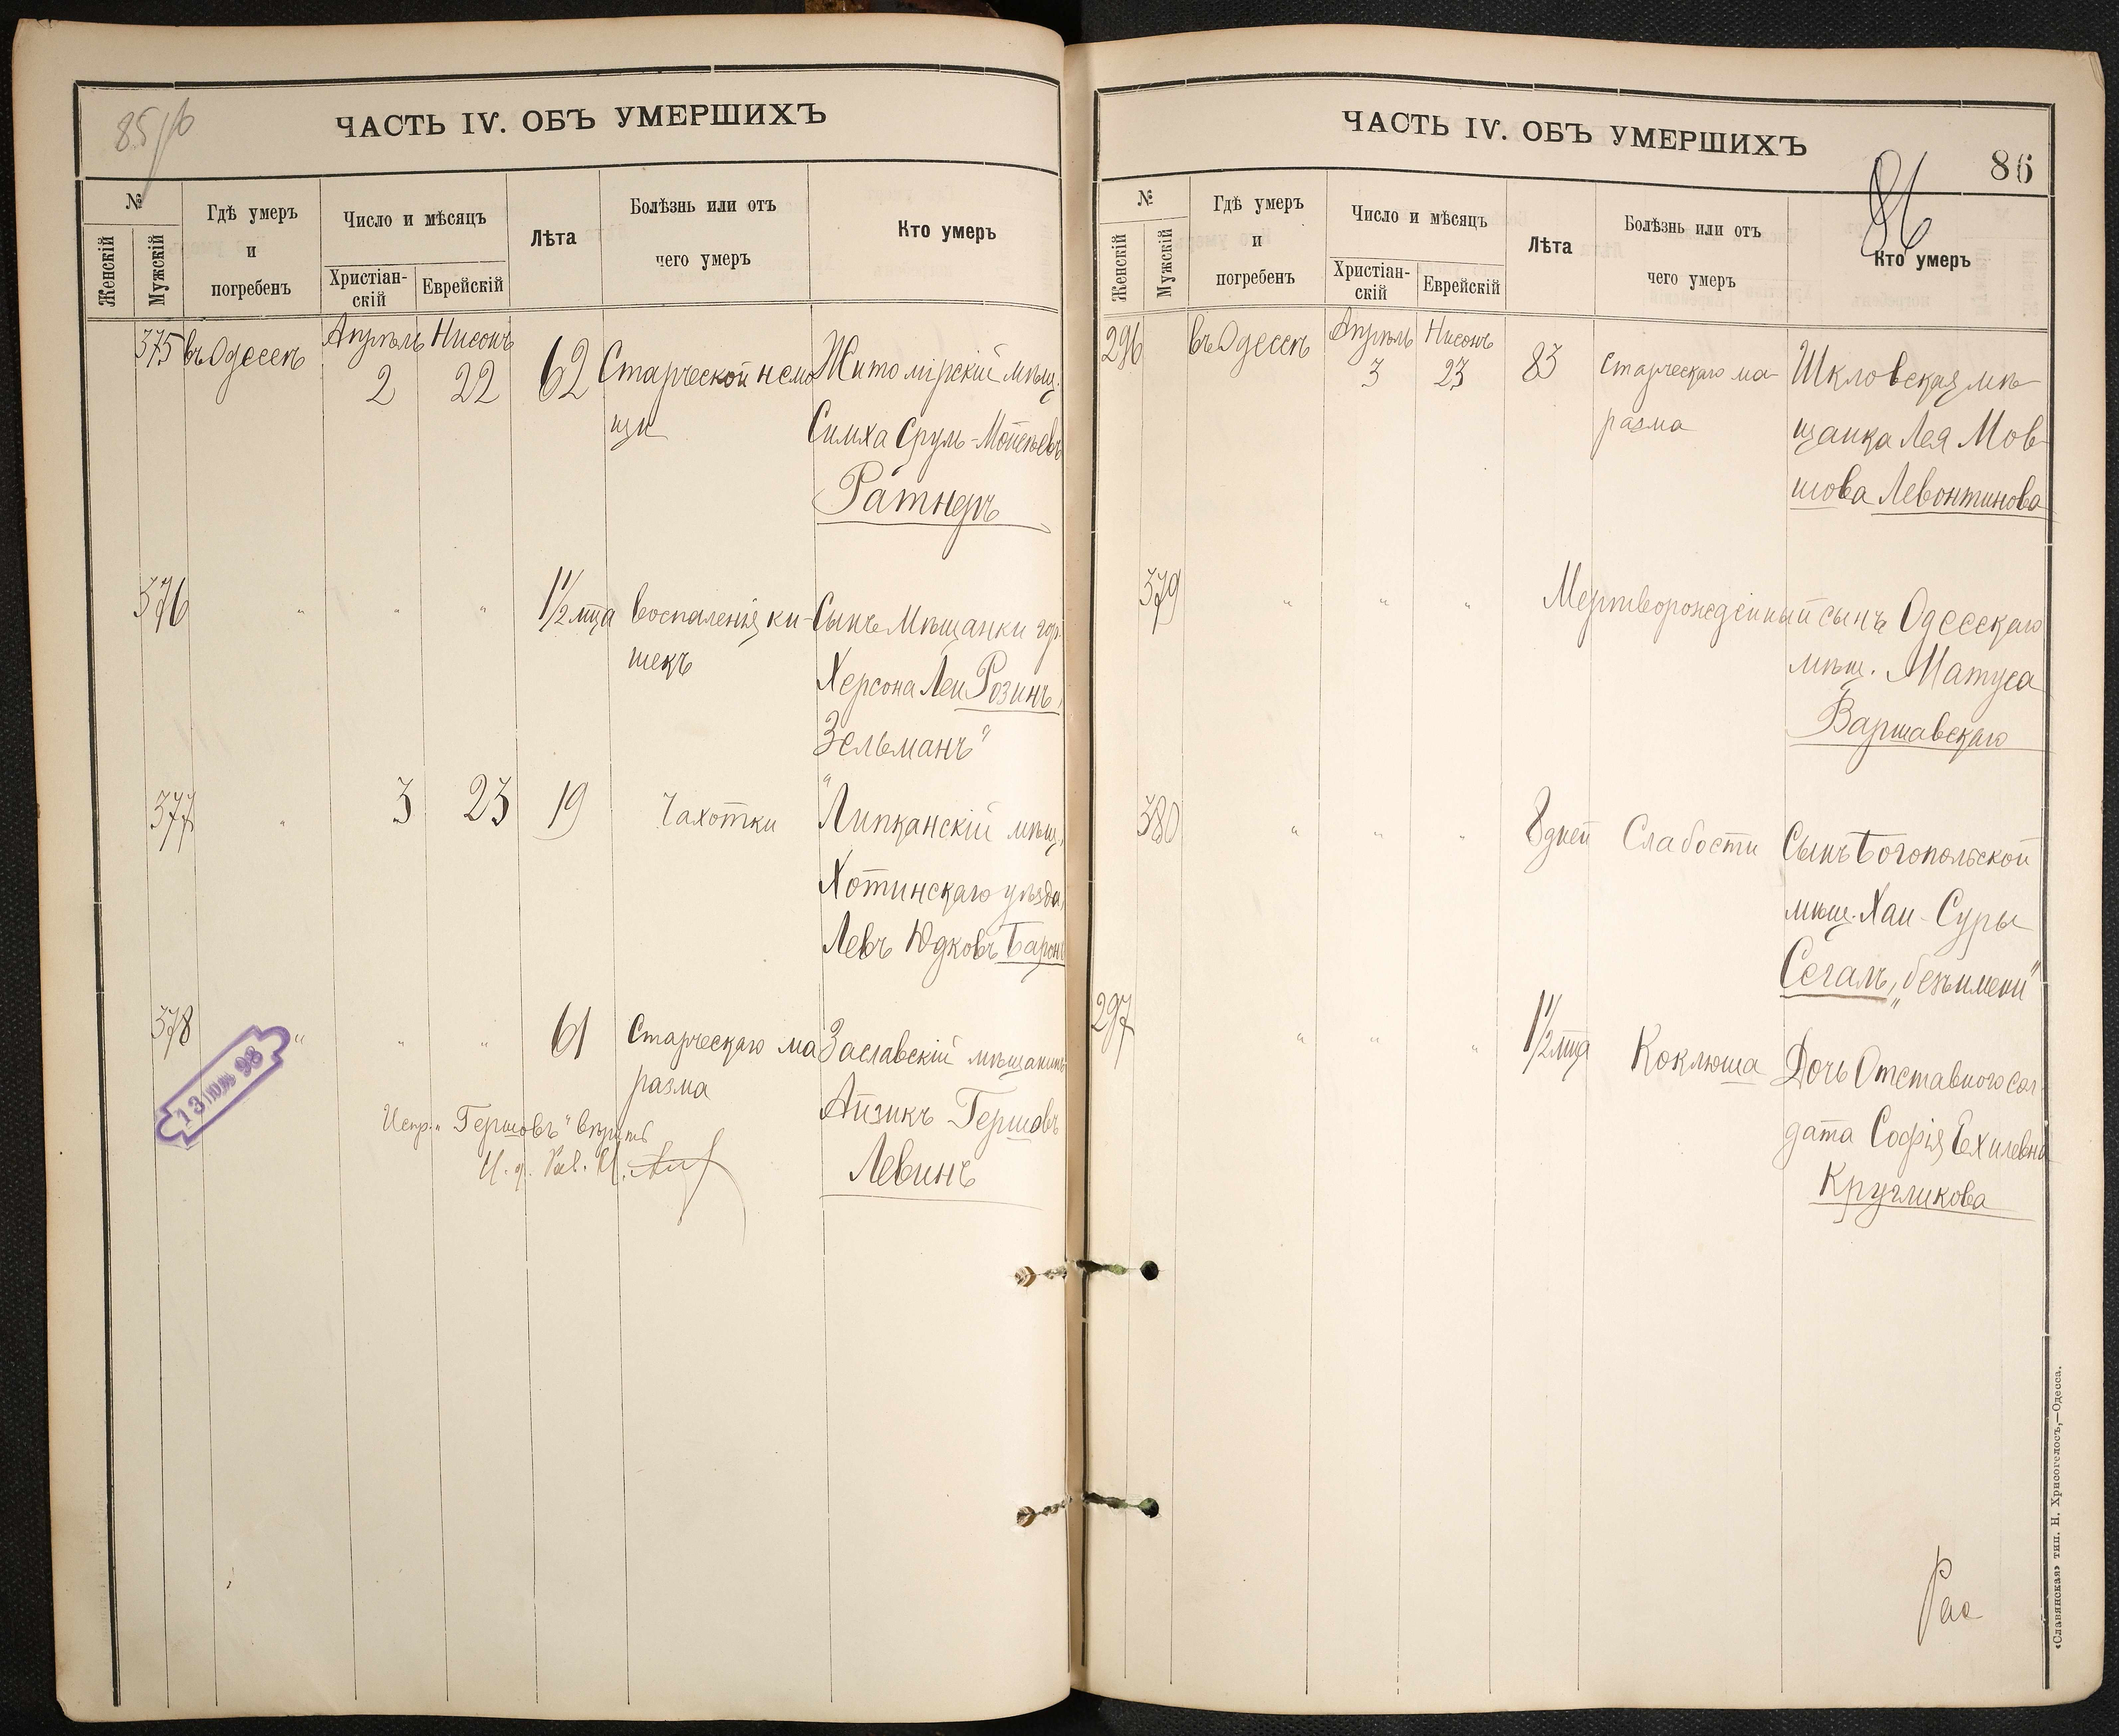 85/6
ЧАСТЬ IV. ОБЪ УМЕРШИХЪ
№
Женскій
Мужскій
Гдѣ умеръ
и
погребенъ
Число и мѣсяцъ
Христіан-
скій
Еврейскій
Лѣта
Болѣзнь или отъ
чего умеръ
Кто умеръ
375 въ Одессѣ Апрѣль 2 Нисонъ 22 62 Старческой немо Житомірскій мѣщ.
щи Симха Сруль-Мойсеевъ
Ратнеръ
376 " " " 1 1/2 мца Воспаленія ки- Сынъ Мѣщанки гор.
шекъ Херсона Леи Розинъ,
Зельманъ"
377 " 3 23 19 Чахотки "Липканскій мѣщ.
Хотинскаго уѣзда,
Левъ Юдковъ Баронъ
378 " " " 61 Старческаго ма Заславскій мѣщанинъ
разма Айзикъ Гершовъ
Левинъ
13 ІЮЛ 98
Испр. "Гершовъ" вѣрить
ЧАСТЬ IV. ОБЪ УМЕРШИХЪ
86
86
№
Женскій
Мужскій
Гдѣ умеръ
и
погребенъ
Число и мѣсяцъ
Христіан-
скій
Еврейскій
Лѣта
Болѣзнь или отъ
чего умеръ
Кто умеръ
296 въ Одессѣ Апрѣль 3 Нисонъ 23 83 Старческаго ма- Шкловская мѣ-
разма щанка Лея Мов-
шова Левонтинова
379 " " " Мертворожденный сынъ Одесскаго
мѣщ. Матуса
Варшавскаго
380 " " " 8 дней Слабости Сынъ Богопольской
мѣщ. Хаи-Суры
Сегалъ, "безъ имени"
297 " " " 1 1/2 мца Коклюша Дочь Отставного сол-
дата Софія Ехилевна
Кругликова
«Славянская» тип. Н. Хрисогелосъ,—Одесса.